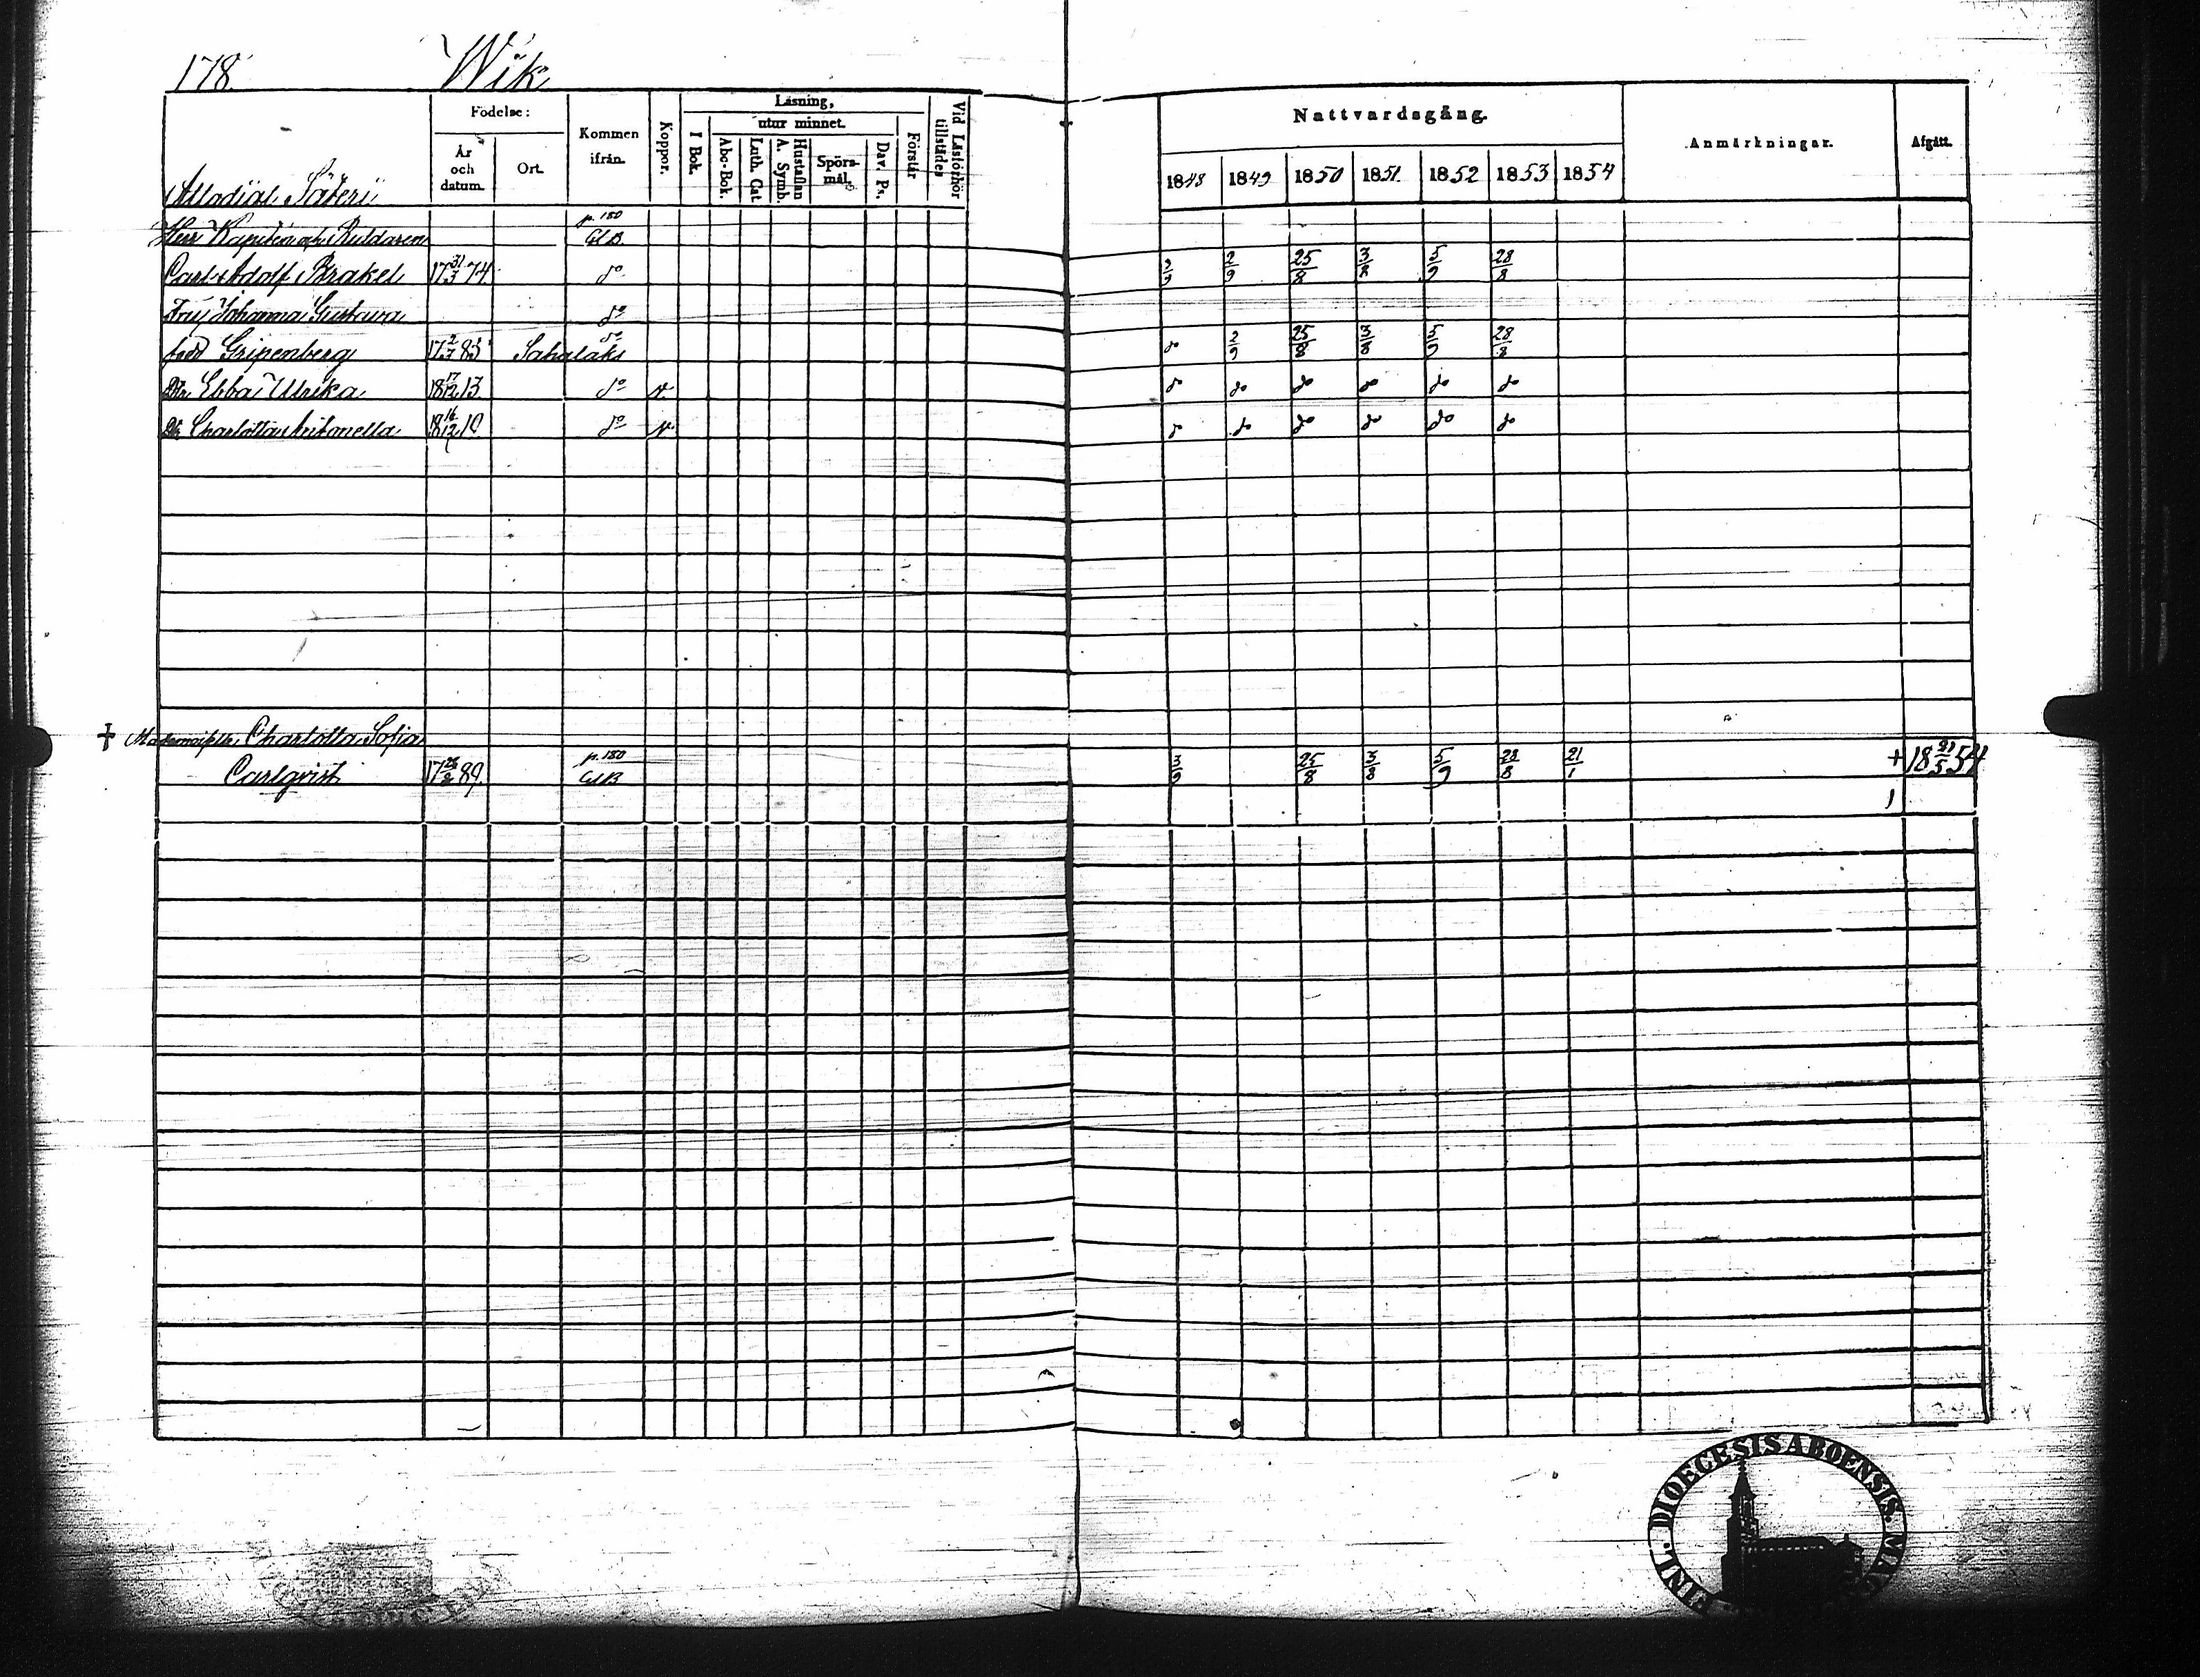 178. Wik
Födelse:
År och datum.
Ort.
Kommen ifrån.
Koppor.
Läsning,
I Bok.
utur minnet.
Abc-Bok.
Luth. Cat
A. Symb. Hustaflan
Spörsmål.
Dav. Ps.
Förstår
Vid Läsförhör tillstädes
Nattvardsgång.
1848 1849 1850 1851. 1852 1853 1854
Anmärkningar.
Afgått.
Allodial Säteri
Herr Kapiten och Riddaren p. 180 Gl B.
Carl Adolf Brakel 17 31/3 74. do 3/9 2/9 25/8 3/8 5/9 28/8
Fru Johanna Gustava do
född Gripenberg 17 2/7 83 Sahalaks do do 2/9 25/8 3/8 5/9 28/8
Dtr Ebba Ulrika 18 17/12 13. do N. do do do do do do
Dtr Charlotta Antonella 18 16/12 19. do N. do do do do do do
† Mademoiselle Charlotta Sofia
Carlqvist 17 26/2 89. p. 180 Gl B 3/9 25/8 3/8 5/9 28/8 21/1 + 18 21/5 54
FINL. DIOECESIS ABOENSIS. MAG